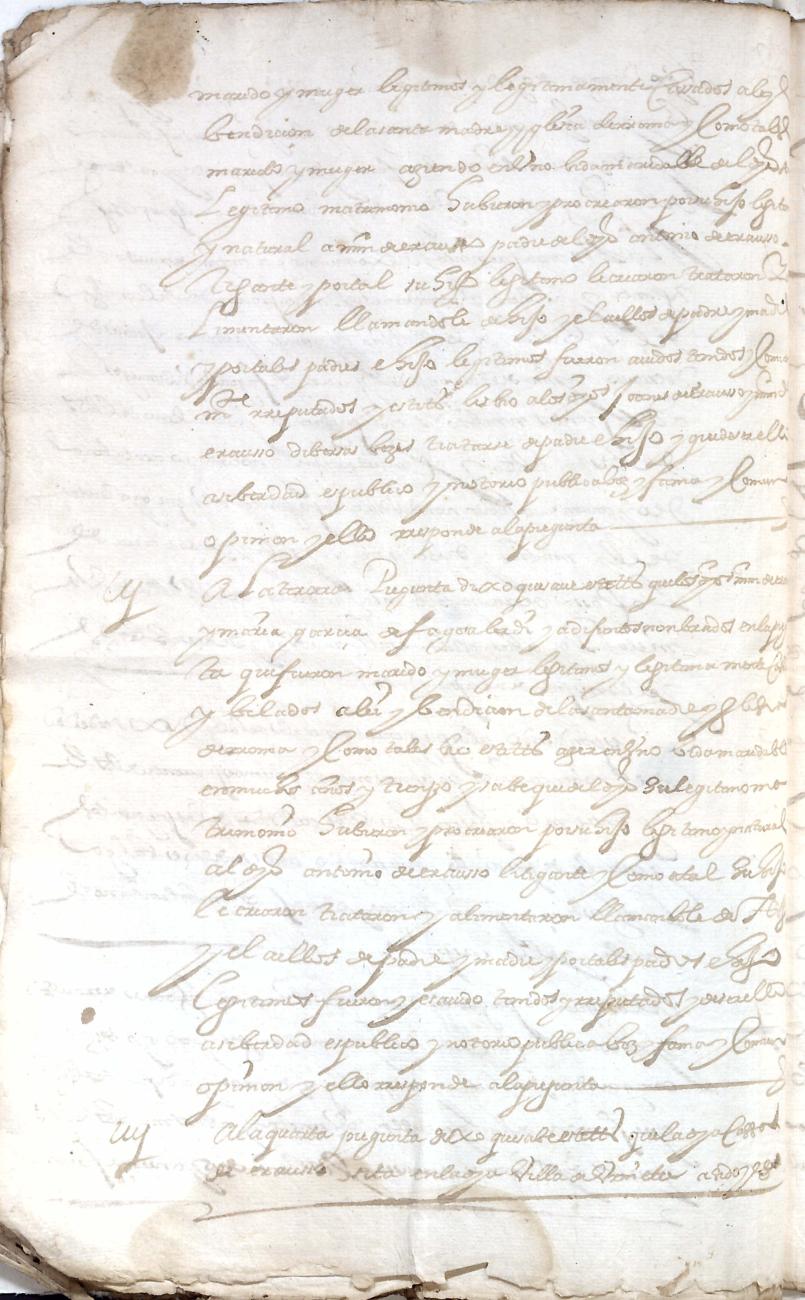 marido y muger legitimos y legitimamente casados a ley
bendicion de la santa madre yglesia de rroma y como tales
marido y muger aziendo en uno bida maridable de
Legitimo matrimonio hubieron y procrearon por su hijo legit
y natural a min de erausso padre del dho antonio de erausso
Litigante y por tal su hijo legitimo le criaron trataron
Limentaron llamandole de hijo y el a ellos de padre y mad
y por tales padres e hijo legitimos fueron auidos tenidos y comun
mte rreputados y este tto les bio a los dhos Joanes de erausso y
erausso dibersas bezes tratarse de padre e hijo y que de ser ello
asi berdad es publico y notorio publica boz y fama y comun
opinion y esto rresponde a la pregunta
iij A la terzera Pregunta dixo que saue este tto que los dhos min de
y maria garcia de fagoaba difuntos nonbrados en la preg
ta que fueron marido y muger legitimos y legitimamente
y belados a ley y bendicion de la santa madre yglesia
de rroma y como tales bio este tto azer en uno vida maridable
en muchos años y tienpo y sabe que del dho su legitimo ma
trimonio hubieron y procrearon por su hijo legitimo y natural
al dho antonio de erausso litigante y como a tal su hijo
le criaron trataron y alimentaron llamandole de hijo
y el a ellos de padre y madre y por tales padres e hijo
legitimos fueron y es auido tenidos y rreputados y de ser ello
asi berdad es publico y notorio publica boz y fama y comun
opinion y esto rresponde a la pregunta
iiij A la quarta pregunta dixo que sabe este tto que la dha cassa
de erausso sita en la dha Villa de